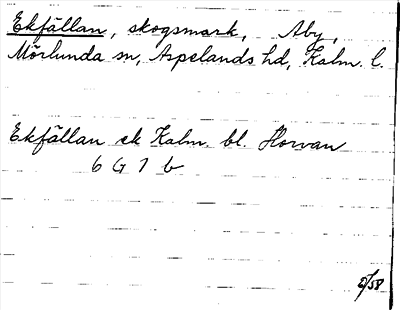 Ekfällan, skogsmark, Åby,
Mörlunda sn, Aspelands hd, Kalm. l.
Ekfällan ek Kalm. bl. Horvan
6 G 7 b
2/58